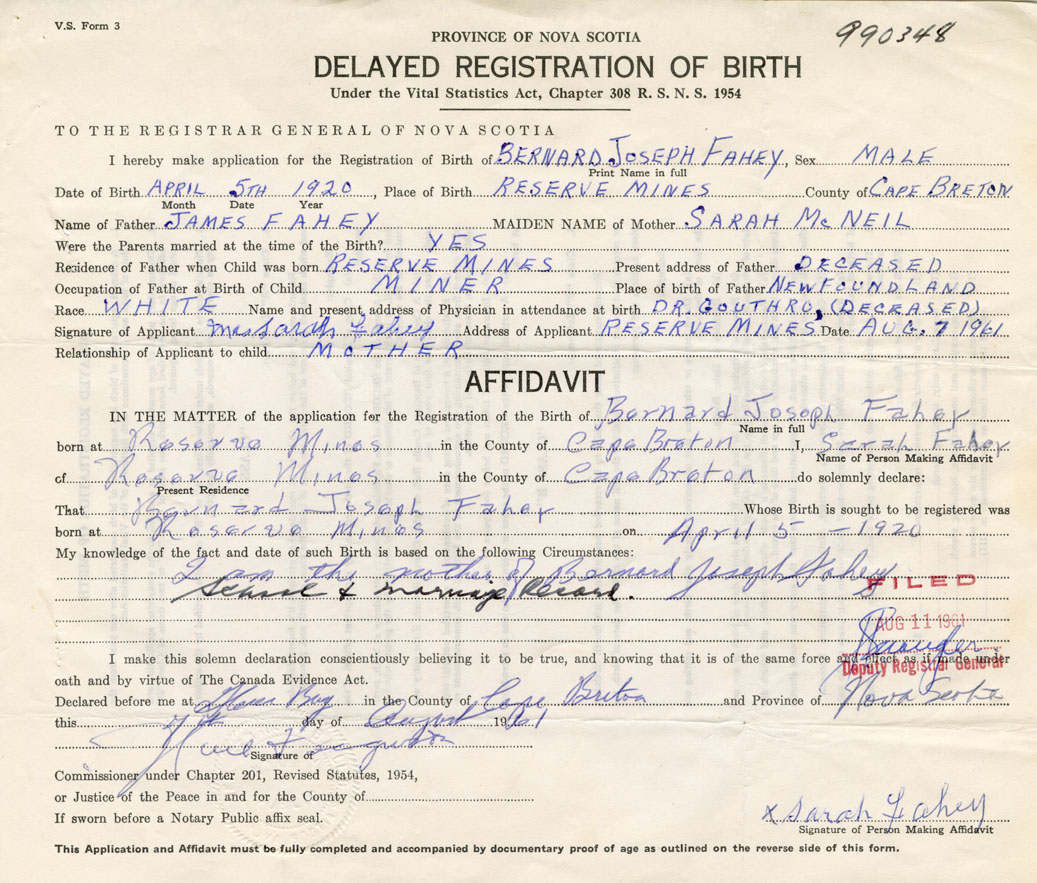 V.S. Form 3
990348
PROVINCE OF NOVA SCOTIA
DELAYED REGISTRATION OF BIRTH
Under the Vital Statistics Act, Chapter 308 R. S. N. S. 1954
TO THE REGISTRAR GENERAL OF NOVA SCOTIA
I hereby make application for the Registration of Birth of BERNARD JOSEPH FAHEY, Sex MALE
Print Name in full
Date of Birth APRIL 5TH 1920, Place of Birth RESERVE MINES County of CAPE BRETON
Month Date Year
Name of Father JAMES FAHEY MAIDEN NAME of Mother SARAH McNEIL
Were the Parents married at the time of the Birth? YES
Residence of Father when Child was born RESERVE MINES Present address of Father DECEASED
Occupation of Father at Birth of Child MINER Place of birth of Father NEWFOUNDLAND
Race WHITE Name and present address of Physician in attendance at birth DR. GOUTHRO, (DECEASED)
Signature of Applicant Mrs Sarah Fahey Address of Applicant RESERVE MINES Date AUG. 7 1961
Relationship of Applicant to child MOTHER
AFFIDAVIT
IN THE MATTER of the application for the Registration of the Birth of Bernard Joseph Fahey
Name in full
born at Reserve Mines in the County of Cape Breton I, Sarah Fahey
Name of Person Making Affidavit
of Reserve Mines in the County of Cape Breton do solemnly declare:
Present Residence
That Bernard Joseph Fahey Whose Birth is sought to be registered was
born at Reserve Mines on April 5 - 1920
My knowledge of the fact and date of such Birth is based on the following Circumstances:
I am the mother of Bernard Joseph Fahey
School & marriage Record.
FILED
AUG 11 1961
Deputy Registrar General
I make this solemn declaration conscientiously believing it to be true, and knowing that it is of the same force and effect as if made under
oath and by virtue of The Canada Evidence Act.
Declared before me at Glace Bay in the County of Cape Breton and Province of Nova Scotia
this 7th day of August 1961
Signature of
Commissioner under Chapter 201, Revised Statutes, 1954,
or Justice of the Peace in and for the County of
If sworn before a Notary Public affix seal.
x Sarah Fahey
Signature of Person Making Affidavit
This Application and Affidavit must be fully completed and accompanied by documentary proof of age as outlined on the reverse side of this form.